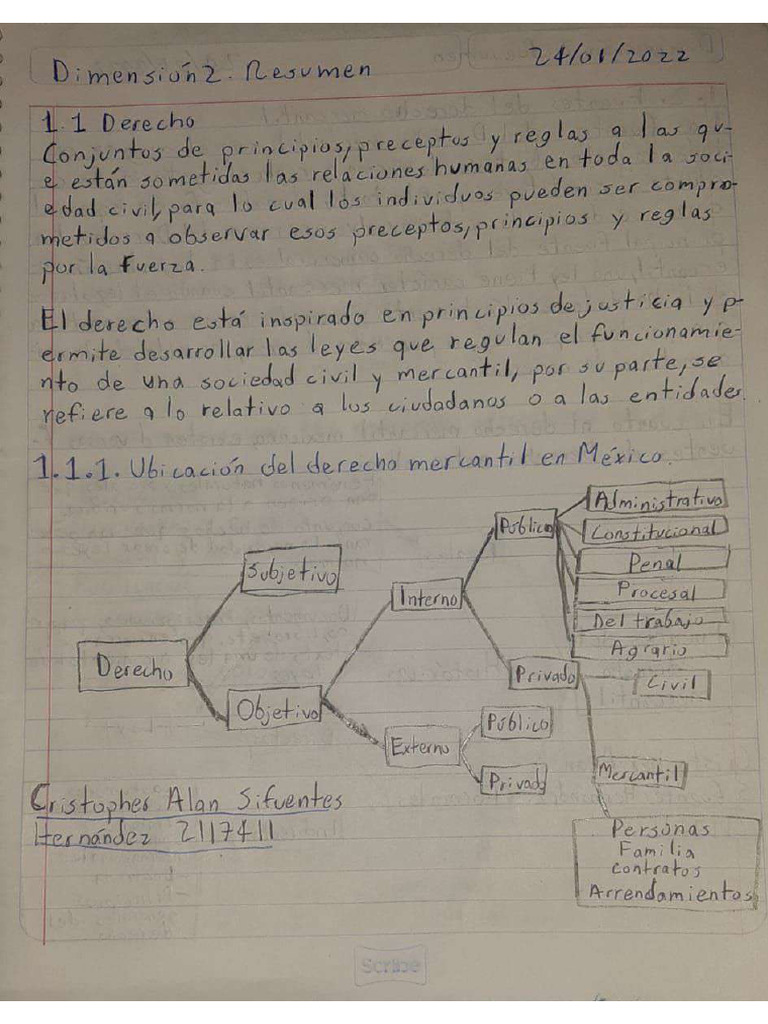 Dimensión 2. Resumen
24/01/2022
1.1 Derecho
Conjuntos de principios, preceptos y reglas a las qu-
e están sometidas las relaciones humanas en toda la soci-
edad civil, para lo cual los individuos pueden ser compro-
metidos a observar esos preceptos, principios y reglas
por la fuerza.
El derecho está inspirado en principios de justicia y p-
ermite desarrollar las leyes que regulan el funcionamie-
nto de una sociedad civil y mercantil, por su parte, se
refiere a lo relativo a los ciudadanos o a las entidades.
1.1.1. Ubicación del derecho mercantil en México.
Derecho
Subjetivo
Objetivo
Interno
Externo
Público
Privado
Público
Privado
Administrativo
Constitucional
Penal
Procesal
Del trabajo
Agrario
Civil
Mercantil
Personas
Familia
contratos
Arrendamientos
Cristopher Alan Sifuentes
Hernández 2117411
Scribe